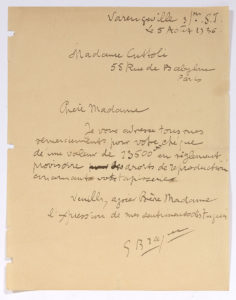 Varengeville s/mer S.I.
Le 5 Août 1936
Madame Cuttoli
55 Rue de Babylone
Paris
Chère Madame
Je vous adresse tous mes
remerciements pour votre chèque
de une valeur de 13500 en règlement
provisoire des droits de reproduction
Veuillez, agréer Chère Madame
l'expression de mes sentiments distingués
G Braque